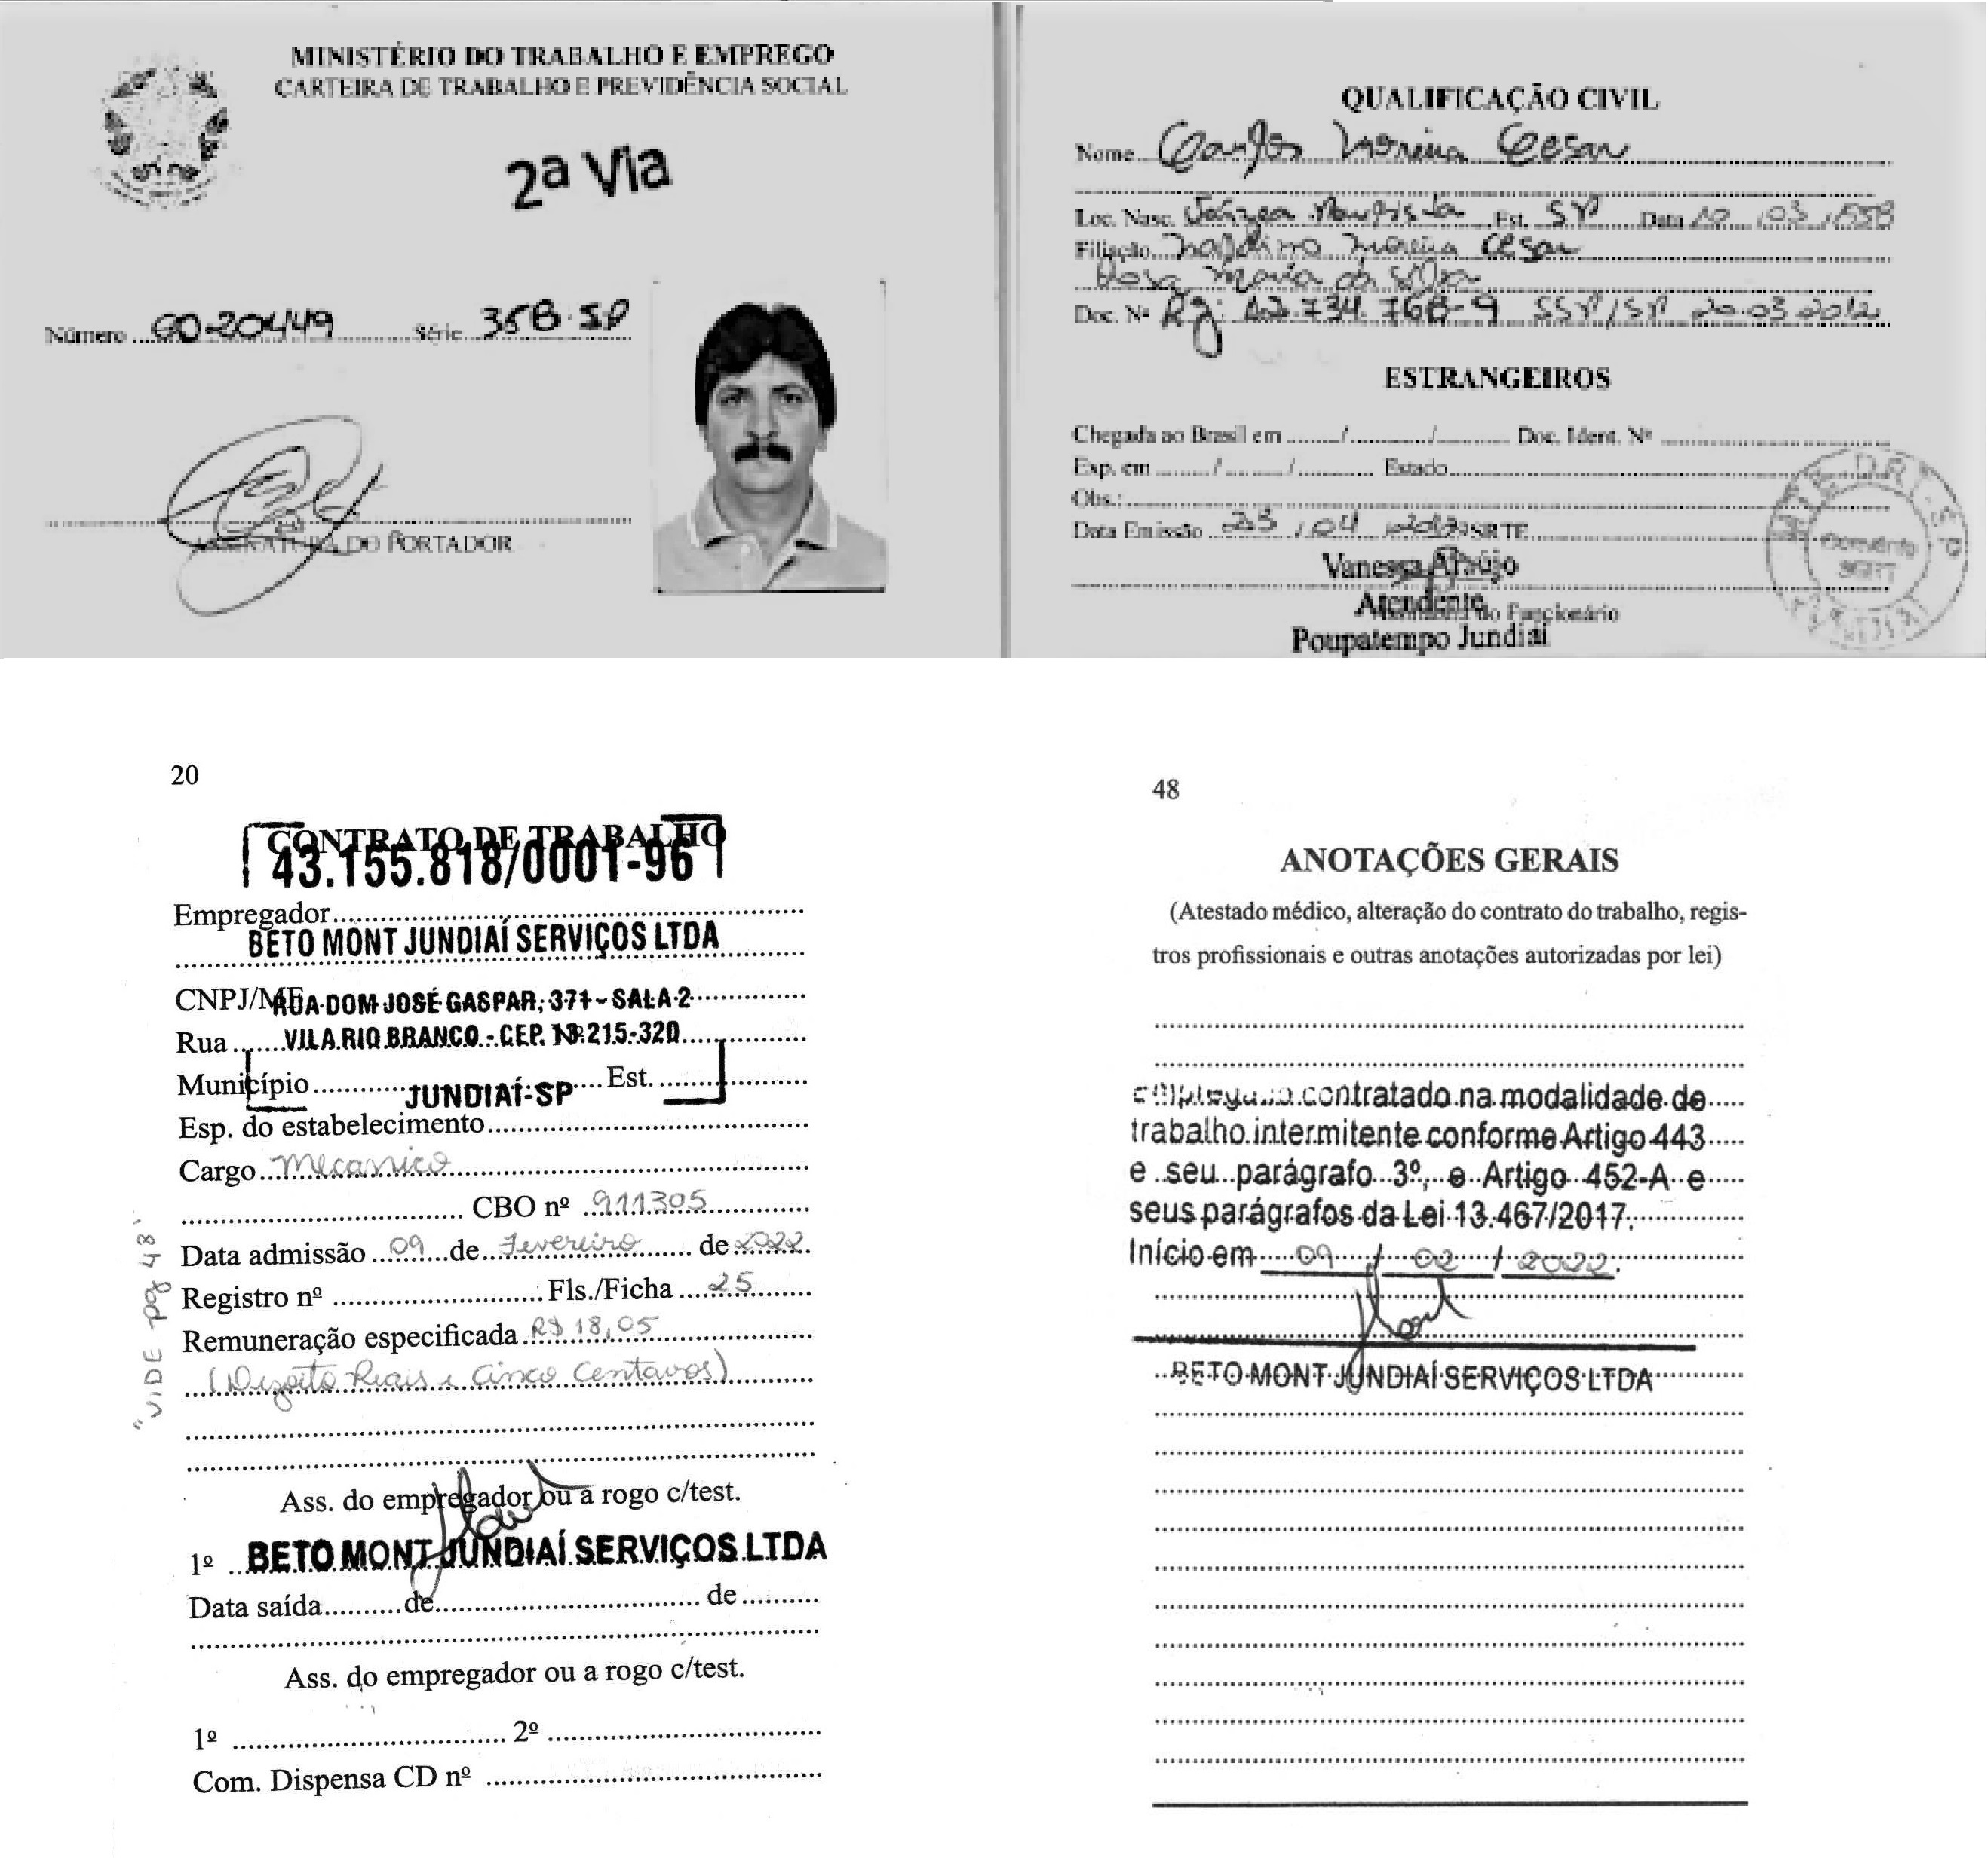 MINISTÉRIO DO TRABALHO E EMPREGO
CARTEIRA DE TRABALHO E PREVIDÊNCIA SOCIAL
2ª Via
Número Série
ASSINATURA DO PORTADOR
QUALIFICAÇÃO CIVIL
Nome Carlos Moreira Cesar
Loc. Nasc. Várzea Paulista Est. SP Data 03
Filiação Moreira Cesar
Rosa Maria da Silva
Doc. Nº Rg: SSP/SP 20.03.2012
ESTRANGEIROS
Chegada ao Brasil em / / Doc. Ident. Nº
Exp. em / / Estado
Obs.:
Data Emissão 23 / 04 SRTE
Vanessa Araújo
Atendente do Funcionário
Poupatempo Jundiaí
20
CONTRATO DE TRABALHO
43.155.818/0001-96
Empregador
BETO MONT JUNDIAÍ SERVIÇOS LTDA
CNPJ/MF RUA DOM JOSÉ GASPAR, 371 - SALA 2
Rua VILA RIO BRANCO - CEP. 13.215-320
Município JUNDIAÍ-SP Est.
Esp. do estabelecimento
Cargo mecanico
CBO nº 911305
Data admissão 09 de Fevereiro de 2022
Registro nº Fls./Ficha 25
Remuneração especificada R$ 18,05
(Dezoito Reais e Cinco Centavos)
"VIDE pag 48"
Ass. do empregador ou a rogo c/test.
1º BETO MONT JUNDIAÍ SERVIÇOS LTDA
Data saída de de
Ass. do empregador ou a rogo c/test.
1º 2º
Com. Dispensa CD nº
48
ANOTAÇÕES GERAIS
(Atestado médico, alteração do contrato do trabalho, regis-
tros profissionais e outras anotações autorizadas por lei)
contratado na modalidade de
trabalho intermitente conforme Artigo 443
e seu parágrafo 3º, e Artigo 452-A e
seus parágrafos da Lei 13.467/2017.
Início em 09 / 02 / 2022.
BETO MONT JUNDIAÍ SERVIÇOS LTDA